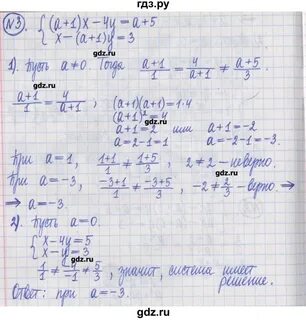 гдз.ру
№3. { (a+1)x - 4y = a+5
x - (a+1)y = 3
1). Пусть a≠0. Тогда (a+1)/1 = 4/(a+1) ≠ (a+5)/3
(a+1)/1 = 4/(a+1) ; (a+1)(a+1) = 1·4
(a+1)² = 4
a+1 = 2 или a+1 = -2
a = 2-1 = 1 a = -2-1 = -3.
При a = 1, (1+1)/1 ≠ (1+5)/3, 2 ≠ 2 - неверно.
При a = -3, (-3+1)/1 ≠ (-3+5)/3, -2 ≠ 2/3 - верно. ⇒
⇒ a = -3.
2). Пусть a = 0.
{ x - 4y = 5
x - y = 3
1/1 ≠ -4/-1 ≠ 5/3, значит, система имеет
решение.
Ответ: при a = -3.
гдз.ру